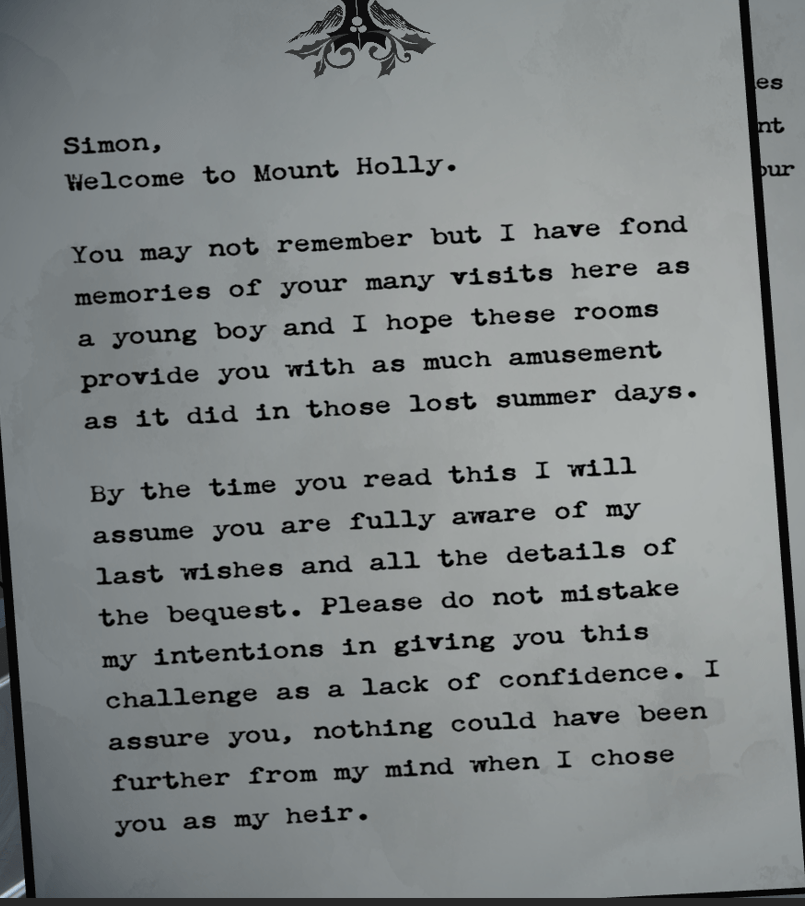 Simon,
Welcome to Mount Holly.
You may not remember but I have fond
memories of your many visits here as
a young boy and I hope these rooms
provide you with as much amusement
as it did in those lost summer days.
By the time you read this I will
assume you are fully aware of my
last wishes and all the details of
the bequest. Please do not mistake
my intentions in giving you this
challenge as a lack of confidence. I
assure you, nothing could have been
further from my mind when I chose
you as my heir.